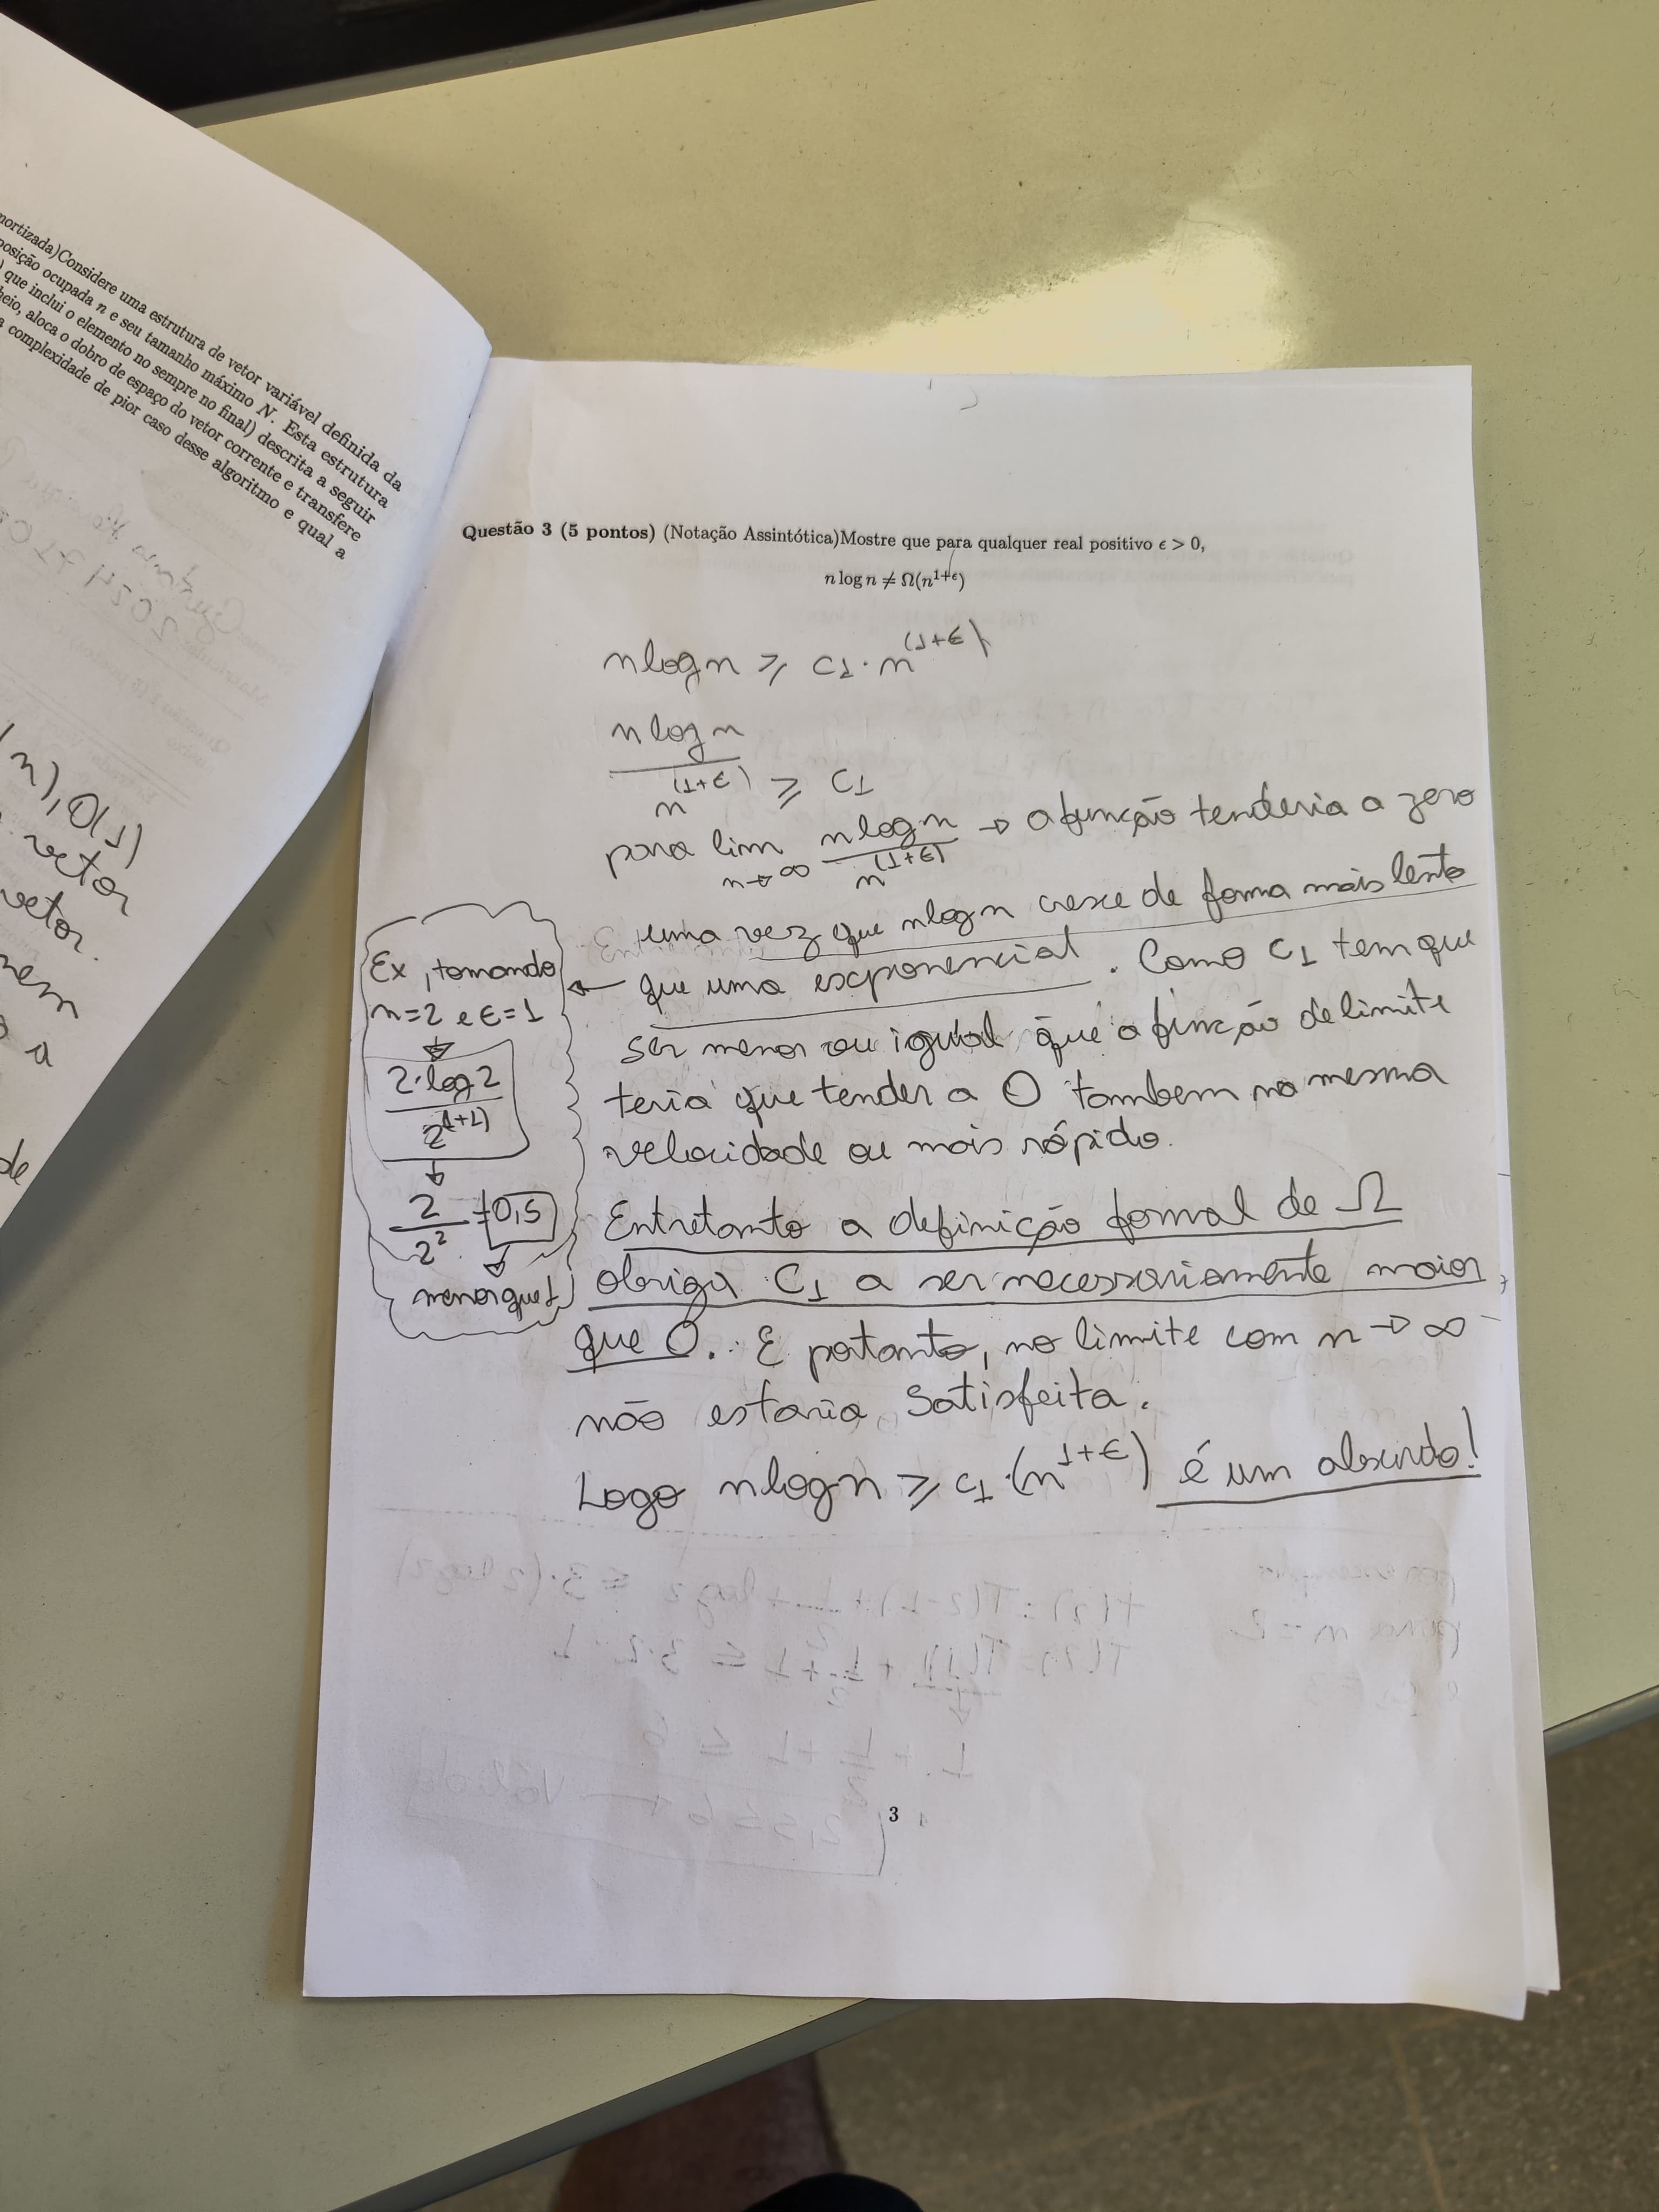 mortizada)Considere uma estrutura de vetor variável definida da
posição ocupada n e seu tamanho máximo N. Esta estrutura
que inclui o elemento no sempre no final) descrita a seguir
heio, aloca o dobro de espaço do vetor corrente e transfere
a complexidade de pior caso desse algoritmo e qual a
n), O(1)
vector
vetor.
nem
a
de
Questão 3 (5 pontos) (Notação Assintótica)Mostre que para qualquer real positivo ϵ > 0,
n log n ≠ Ω(n^{1+ϵ})
nlogn ≥ C1 · n^{(1+ϵ)}
nlogn / n^{(1+ϵ)} ≥ C1
para lim n→∞ nlogn / n^{(1+ϵ)} → a função tenderia a zero
uma vez que nlogn cresce de forma mais lenta
que uma exponencial. Como C1 tem que
ser menor ou igual que a função de limite
teria que tender a 0 tambem na mesma
velocidade ou mais rápido.
Entretanto a definição formal de Ω
obriga C1 a ser necessariamente maior
que 0. E portanto, no limite com n → ∞
não estaria satisfeita.
Logo nlogn ≥ C1 · (n^{1+ϵ}) é um absurdo!
Ex, tomando
n=2 e ϵ=1
2·log2 / 2^{(1+1)}
2 / 2^2 = 0,5
menor que 1
3